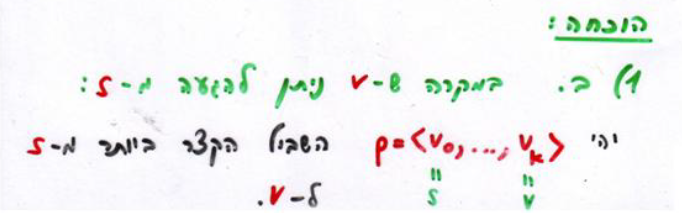 הוכחה:
1) ב. במקרה ש-v ניתן להגעה מ-s:
יהי p=<v₀,...,vₖ> השביל הקצר ביותר מ-s
ל-v. s = v₀, v = vₖ